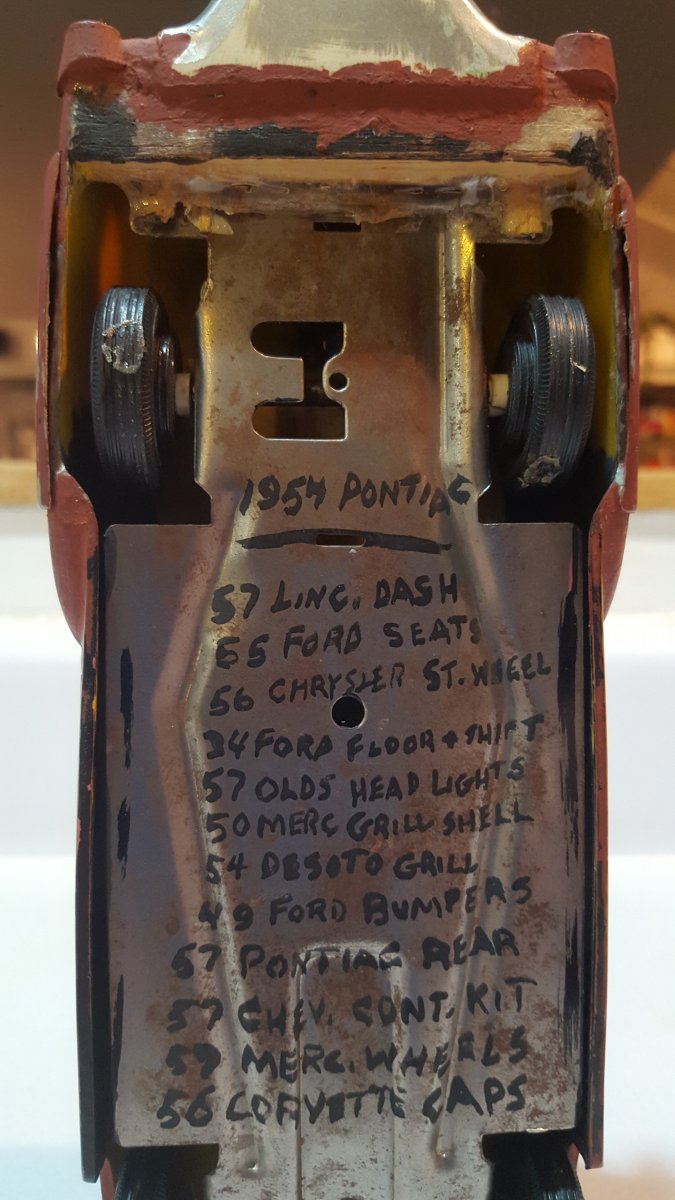 1954 PONTIAC
57 LINC. DASH
55 FORD SEATS
56 CHRYSLER ST. WHEEL
34 FORD FLOOR + SHIFT
57 OLDS HEAD LIGHTS
50 MERC GRILL SHELL
54 DESOTO GRILL
49 FORD BUMPERS
57 PONTIAC REAR
57 CHEV. CONT. KIT
59 MERC. WHEELS
56 CORVETTE CAPS